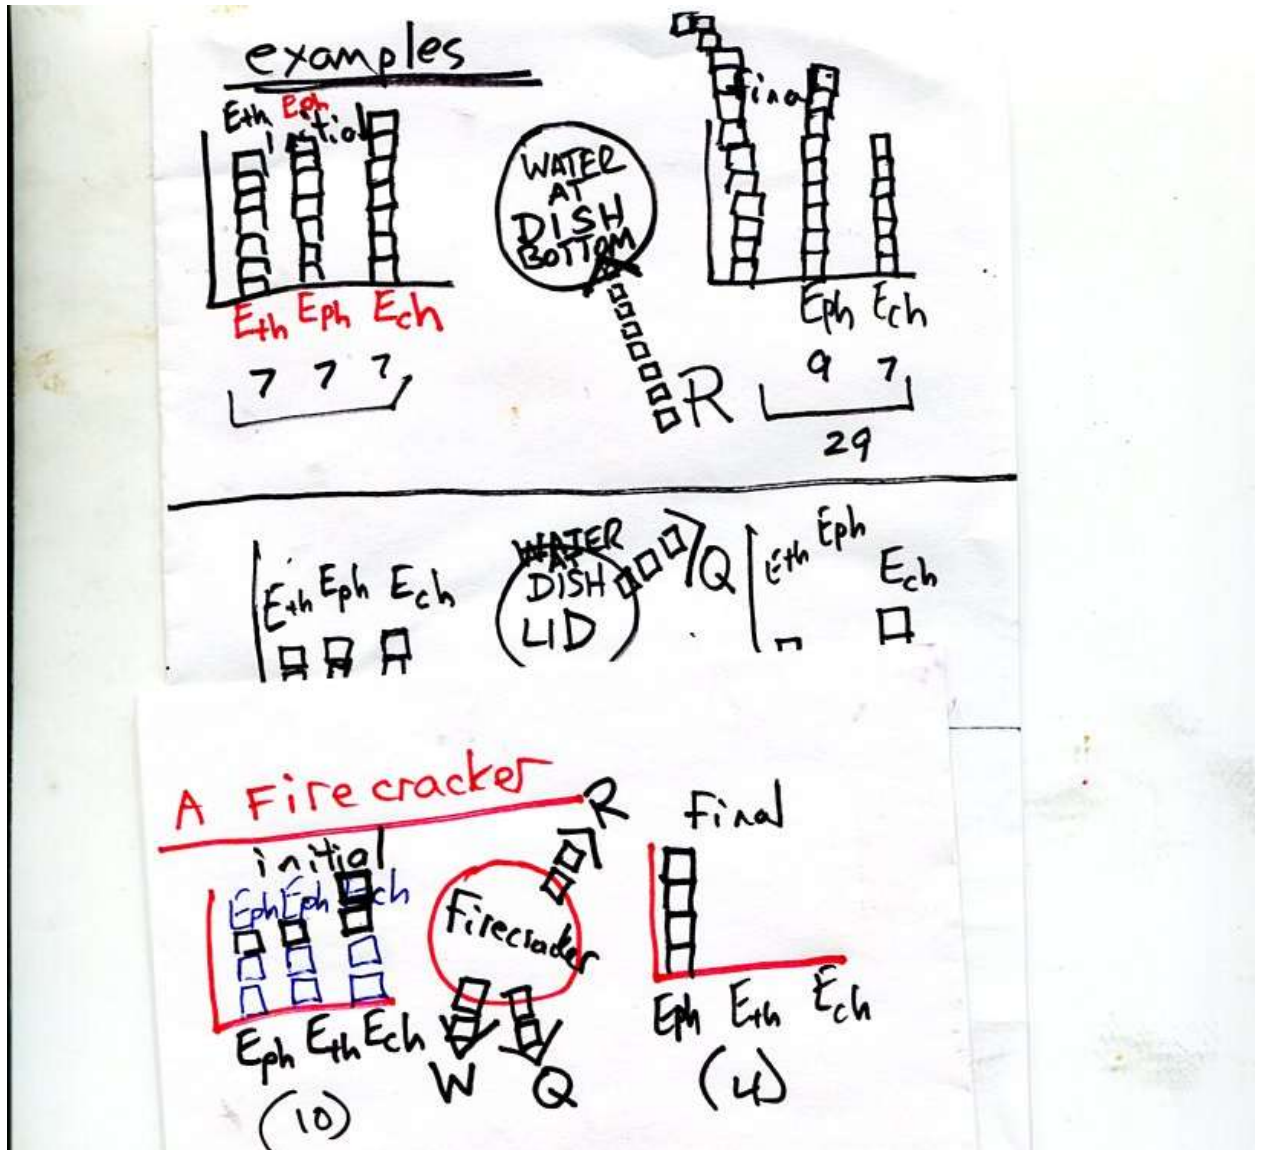 examples
Eth Eph
initial
Eth Eph Ech
7 7 7
WATER
AT
DISH
BOTTOM
R
final
Eph Ech
9 7
29
Eth Eph Ech
WATER
AT
DISH
LID
Q
Eth Eph Ech
A Firecracker
initial
Eph Eph Ech
Eph Eth Ech
(10)
Firecracker
R
W Q
Final
Eph Eth Ech
(4)